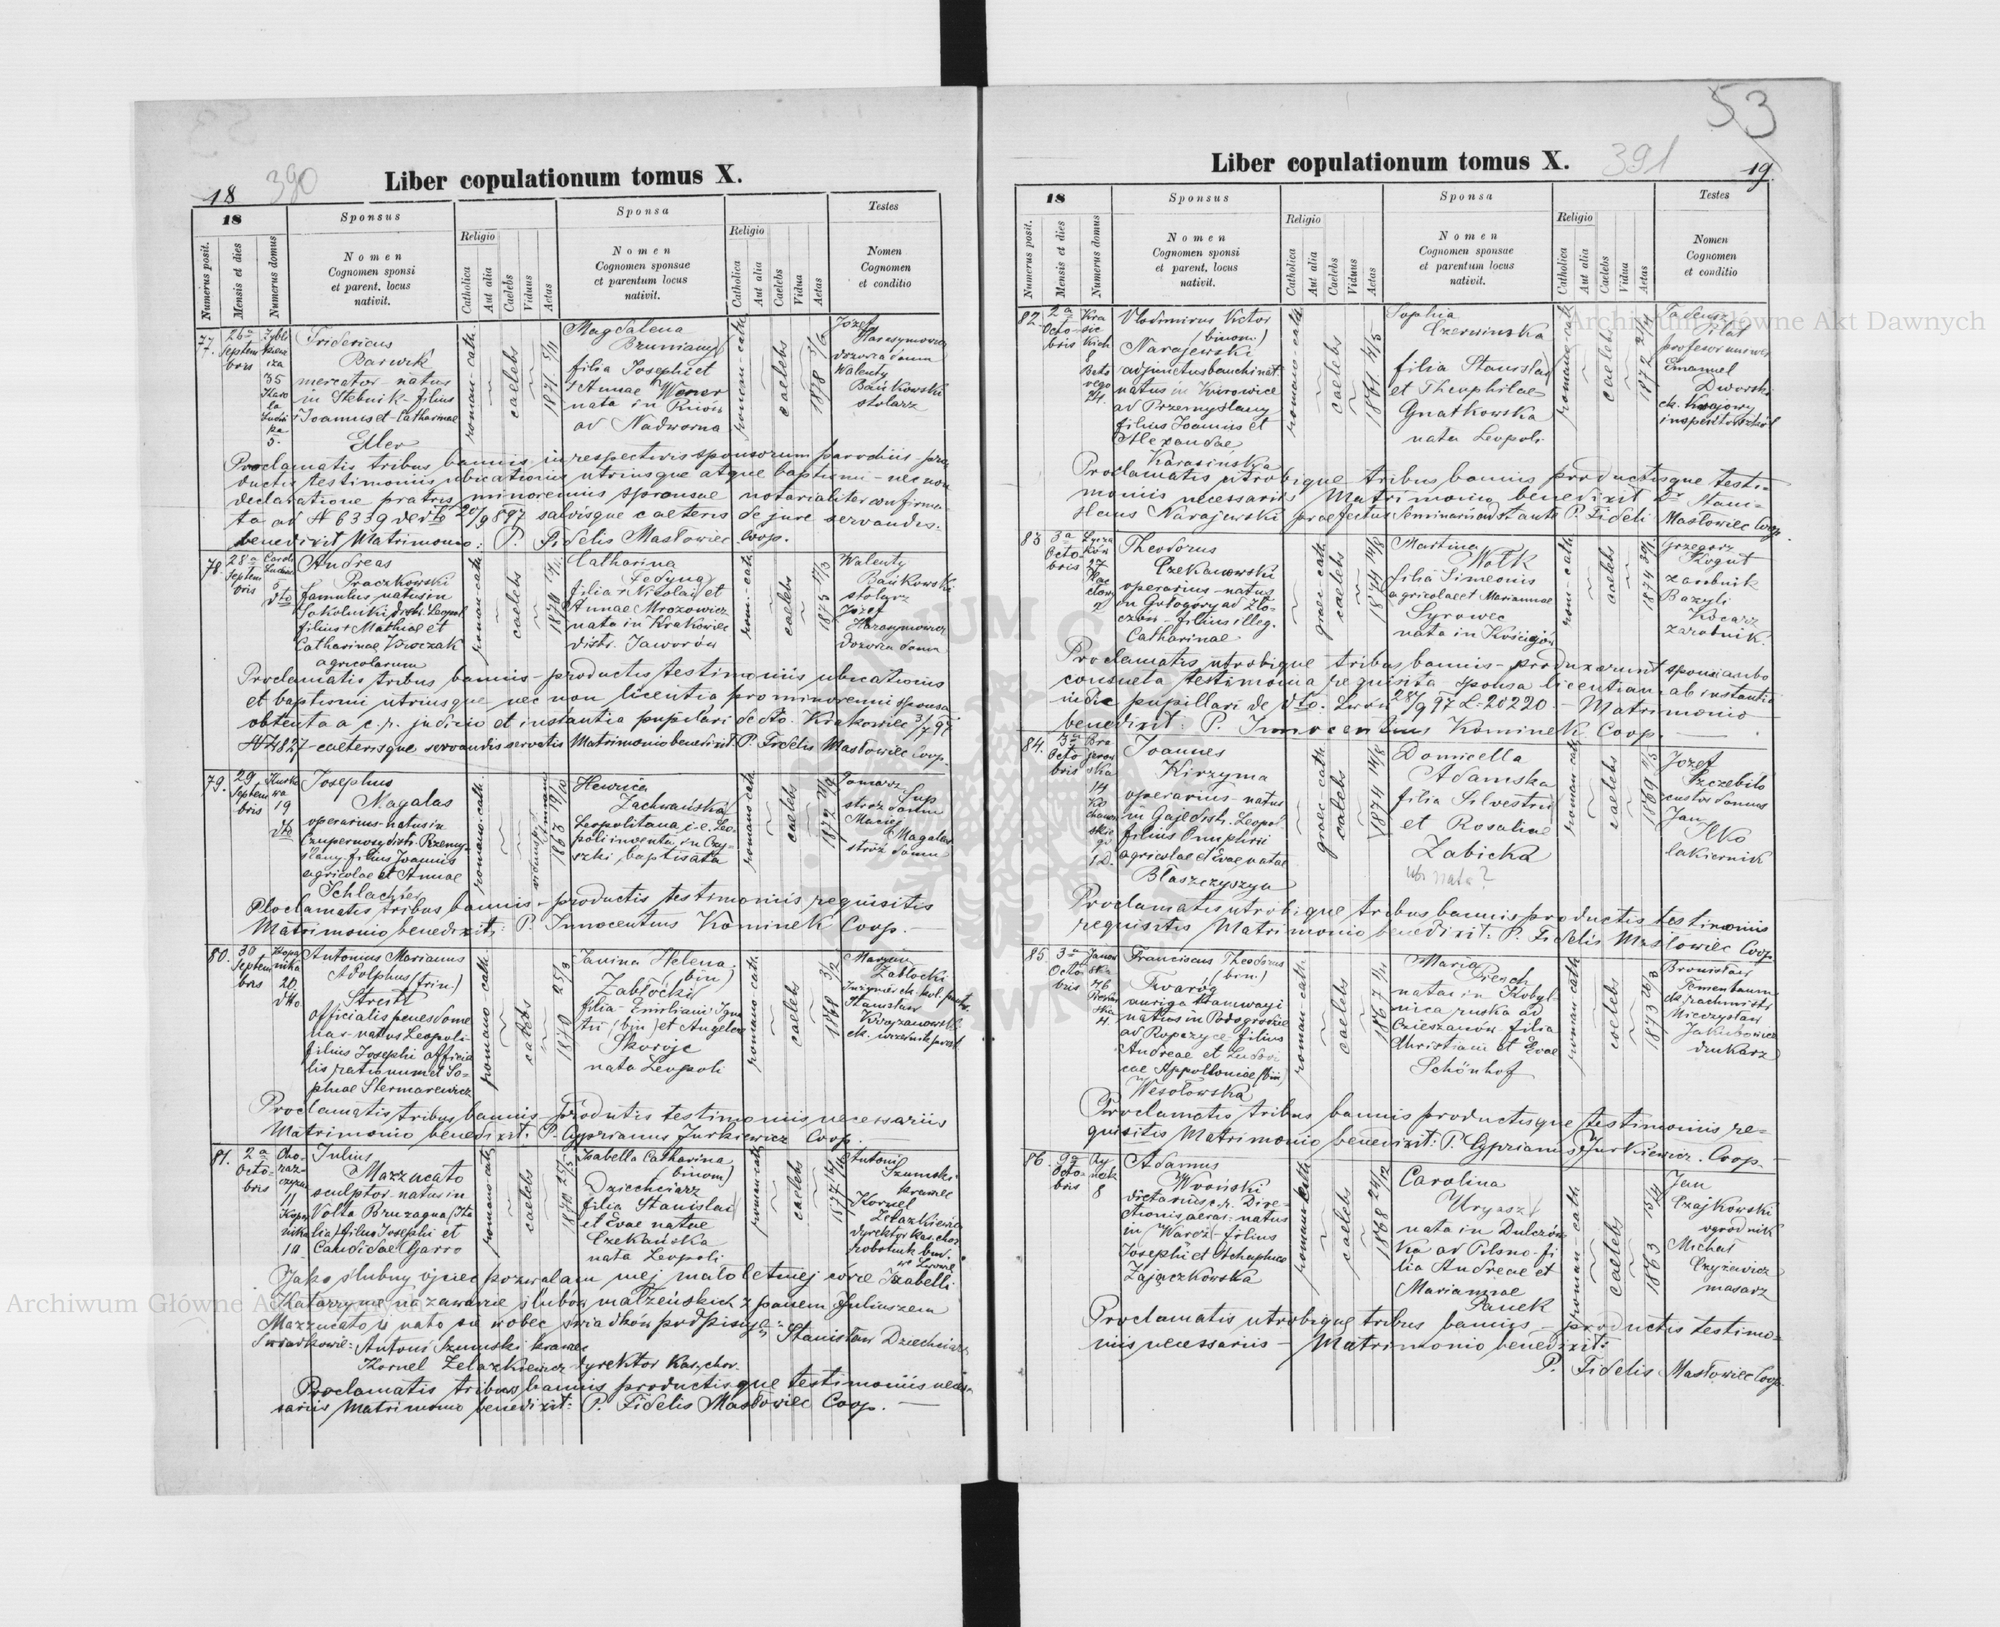 53
18 390
Liber copulationum tomus X.
18
Sponsus
Sponsa
Testes
Numerus posit.
Mensis et dies
Numerus domus
Nomen
Cognomen sponsi
et parent. locus
nativit.
Religio
Catholica
Aut alia
Caelebs
Viduus
Aetas
Nomen
Cognomen sponsae
et parentum locus
nativit.
Religio
Catholica
Aut alia
Caelebs
Vidua
Aetas
Nomen
Cognomen
et conditio
77.
26a
Septem
bris
35
5.
Fridericus
Barwik
mercator - natus
in Stebnik - filius
Joannis et Catharinae
Eller
roman-cath.
caelebs
1871 5/11
Magdalena
filia Josephi et
Annae Werner
nata in
ad Nadworna
roman-cath.
caelebs
1878
Józef
Harasymowicz
dozorca domu
Walenty
Bańkowski
stolarz
Proclamatis tribus bannis in respectivis sponsorum parochiis - pro
ductis testimoniis ubicationis utriusque atque baptismi - nec non
declaratione patris minorennis sponsae notarialiter confirma
ta ad N 6339 de dto 20/9 897 salvisque caeteris de jure servandis.
benedixit Matrimonio: P. Fidelis Masłowiec Coop.
78.
28a
Septem
bris
5
dto
Andreas
Praczkowski
famulus natus in
Sokolniki distr. Leopol
filius + Mathiae et
Catharinae Kroczak
agricolarum
roman-cath.
caelebs
1870
Catharina
Fedyna
filia + Nicolai et
Annae Mrozowicz
nata in Krakowiec
distr. Jaworów
rom.-cath.
caelebs
1875
Walenty
Bańkowski
stolarz
Józef
Harasymowicz
dozorca domu
Proclamatis tribus bannis - productis testimoniis ubicationis
et baptismi utriusque nec non licentia pro minorenni sponsa
obtenta a c. r. judicio et instantia pupilari de dto. Krakowiec 3/7 97
N 4827 caeterisque servandis servatis Matrimonio benedixit P. Fidelis Masłowiec Coop.
79.
29
Septem
bris
19
dto
Josephus
Magalas
operarius - natus in
Czupernosy distr. Przemy-
ślany. filius Joannis
agricolae et Annae
Schlachter
romano-cath.
1868 19/10
Henrica
Zachwańska
Leopolitana i. e. Leo-
poli inventa in Czy-
szki baptisata
romano-cath.
caelebs
1872
Tomasz Sup
stróż domu
Maciej
Magalas
stróż domu
Proclamatis tribus bannis - productis testimoniis requisitis
Matrimonio benedixit: P. Innocentius Kominek Coop. —
80.
30
Septem
bris
20
dto
Antonius Marianus
Adolphus (trin)
Streitt
officialis penes dome
nar - natus Leopoli
filius Josephi officia
lis rationum et So-
phiae Stermarewicz
romano-cath.
caelebs
1870 25/3
Janina Helena
(bin)
Zabłocki
filia Emiliani Igna
tii (bin) et Angelae
Skoroje
nata Leopoli
romano-cath.
caelebs
1868 3/12
Maryan
Zabłocki
Stanisław
Krzyżanowski
Proclamatis tribus bannis - produtis testimoniis necessariis
Matrimonio benedixit: P. Cyprianus Jurkiewicz Coop.
81.
2a
Octo-
bris
11
10
Julius
Mazzucato
sculptor natus in
Volta Bruzagna Ita
lia filius Josephi et
Candidae Garro
romano-cath.
caelebs
1870
Izabella Catharina
(binom)
Dziechciarz
filia Stanislai
et Evae natae
Czekańska
nata Leopoli
roman-cath.
caelebs
1877
Antoni
Szumski
krawiec
Kornel
Żelazkiewicz
dyrektor kas. chor.
Jako ślubny ojciec pozwalam mej małoletniej córce Izabelli
Katarzynie na zawarcie ślubów małżeńskich z panem Juliuszem
Mazzucato, i na to się wobec świadków podpisuję: Stanisław Dziechciarz
Świadkowie: Antoni Szumski krawiec
Kornel Żelazkiewicz dyrektor Kas. chor.
Proclamatis tribus bannis productisque testimoniis neces-
sariis Matrimonio benedixit: P. Fidelis Masłowiec Coop. —
Liber copulationum tomus X.
391
19.
18
Sponsus
Sponsa
Testes
Numerus posit.
Mensis et dies
Numerus domus
Nomen
Cognomen sponsi
et parent. locus
nativit.
Religio
Catholica
Aut alia
Caelebs
Viduus
Aetas
Nomen
Cognomen sponsae
et parentum locus
nativit.
Religio
Catholica
Aut alia
Caelebs
Vidua
Aetas
Nomen
Cognomen
et conditio
82.
2a
Octo-
bris
Kra
sic
kich
8
Vladimirus Victor
(binom)
Narajewski
natus in Kurowice
ad Przemyslany
filius Joannis et
Alexandae
Karasińska
romano-cath.
caelebs
1861
Sophia
Czerwińska
filia Stanislai
et Theophilae
Gnatkowska
nata Leopoli
roman-cath
caelebs
1872
Tadeusz
Pilat
profesor uniwer
Emanuel
Dworski
Proclamatis utrobique tribus bannis productisque testi-
moniis necessariis Matrimonio benedixit Dr. Stani-
slaus Narajewski praefectus Seminarii adstante P. Fideli Masłowiec Coop.
83
3a
Octo-
bris
Theodorus
Czekanowski
operarius - natus
in Gołogory ad Zło-
czów - filius illeg.
Catharinae
graec-cath
caelebs
1874 14/8
Martina
Wolk
filia Simeonis
agricolae et Mariannae
Syrowec
nata in Kościejów
rom-cath.
caelebs
1874
Grzegorz
Kogut
zarobnik
Bazyli
Kocarz
zarobnik.
Proclamatis utrobique tribus bannis - produxerunt sponsi ambo
consueta testimonia requisita - sponsa licentiam ab instantia
iudic pupillari de dto. Lwów 28/9 97 L. 20220 - Matrimonio
benedixit: P. Innocentius Kominek Coop. —
84.
3a
Octo
bris
14
Joannes
Kirzyma
operarius - natus
in Gaje distr. Leopol.
filius Onuphrii
agricolae et Evae natae
Błaszczyszyn
graec-cath
caelebs
1874 14/8
Domicella
Adamska
filia Silvestri
et Rosaliae
Zabicka
ubi nata?
roman-cath
caelebs
1869
Józef
Szczebito
custos domus
Jan
Ilko
lakiernik
Proclamatis utrobique tribus bannis productis testimoniis
requisitis Matrimonio benedixit: P. Fidelis Masłowiec Coop
85.
3a
Octo-
bris
76
4.
Franciscus Theodorus
(bin.)
Twaróg
auriga tramwayi
natus in Podegrodzie
ad Ropczyce filius
Andreae et Ludovi
cae Appolloniae (bin)
Wesołowska
roman-cath
caelebs
1867
Maria
Piench
nata in Kobyl-
nica ruska ad
Cieszanów - filia
Christiani et Evae
Schönhof
roman-cath
caelebs
1873
Bronisław
Mieczysław
Jakubowicz
drukarz
Proclamatis tribus bannis productisque testimoniis re-
quisitis Matrimonio benedixit: P. Cyprianus Jurkiewicz. Coop.
86.
9a
Octo-
bris
Ry
nek
8
Adamus
Wroński
dietarius c. r. Dire-
ctionis aerar. natus
in Waręż - filius
Josephi et Stephaniae
Zajączkowska
roman-cath
caelebs
1868 24/12
Carolina
Uryasz
nata in Dulczów-
ka ad Pilsno - fi
lia Andreae et
Mariannae
Panek
roman-cath
caelebs
1863
Jan
Czajkowski
ogrodnik
Michał
Czyżewicz
masarz
Proclamatis utrobique tribus bannis - productis testimo-
niis necessariis - Matrimonio benedixit:
P. Fidelis Masłowiec Coop.
Archiwum Główne Akt Dawnych
Archiwum Główne Akt Dawnych